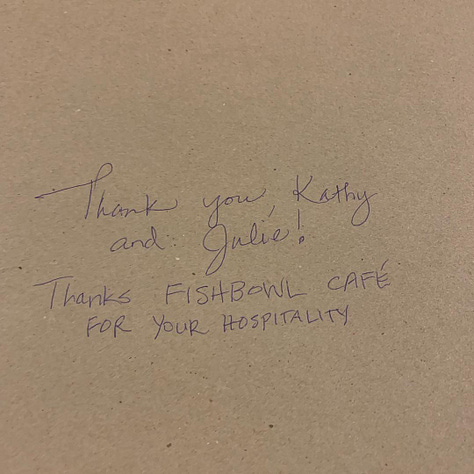 Thank you, Kathy
and Julie!
Thanks FISHBOWL CAFÉ
FOR YOUR HOSPITALITY